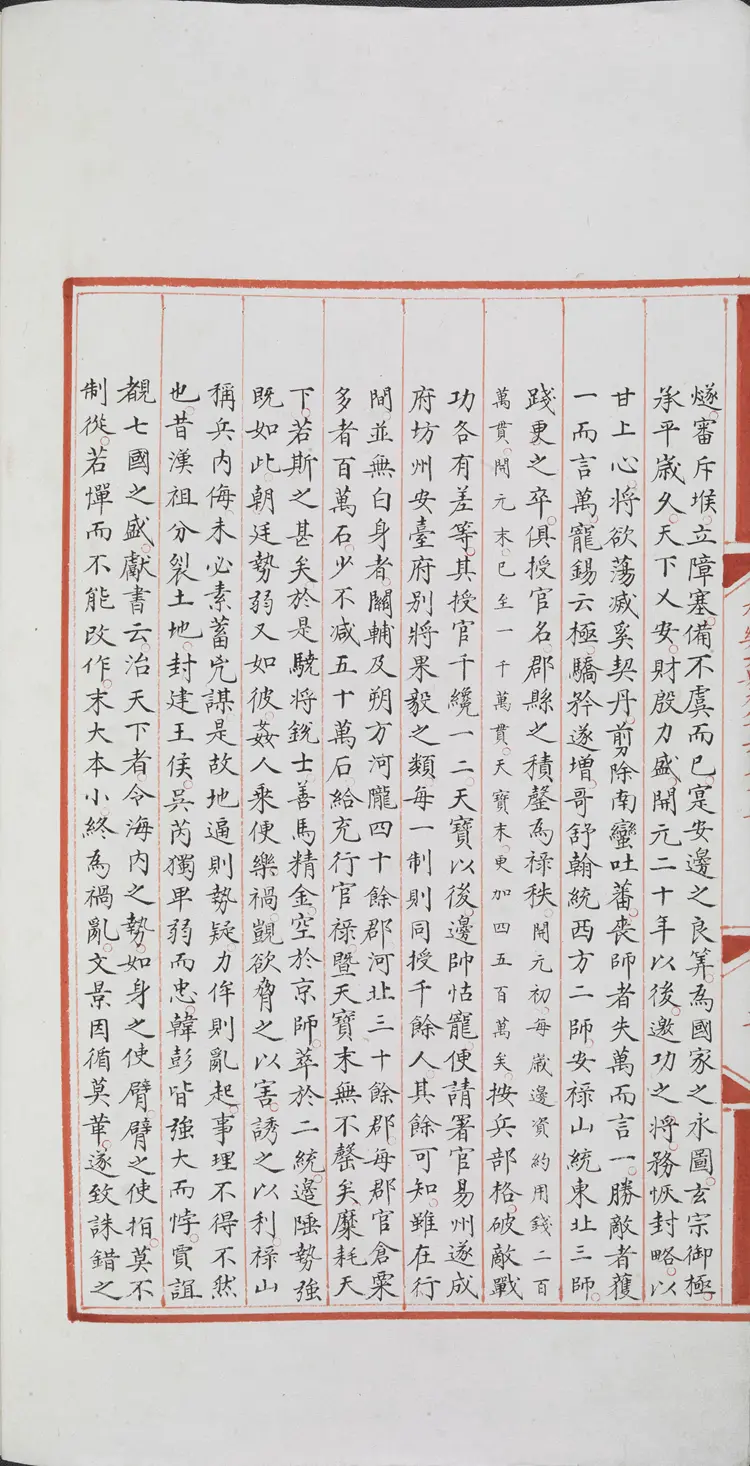 燧審斥堠立障塞備不虞而已寔安邊之良筭為國家之永圖玄宗御極
承平歲久天下乂安財殷力盛開元二十年以後邀功之將務恢封略以
甘上心將欲蕩滅奚契丹剪除南蠻吐蕃喪師者失萬而言一勝敵者獲
一而言萬寵錫云極驕矜遂增哥舒翰統西方二師安祿山統東北三師
踐更之卒俱授官名郡縣之積罄為祿秩開元初每歲邊資約用錢二百
萬貫開元末已至一千萬貫天寶末更加四五百萬矣按兵部格破敵戰
功各有差等其授官千纔一二天寶以後邊帥怙寵便請署官易州遂成
府坊州安臺府別將果毅之類每一制則同授千餘人其餘可知雖在行
間並無白身者關輔及朔方河隴四十餘郡河北三十餘郡每郡官倉粟
多者百萬石少不減五十萬石給充行官祿暨天寶末無不罄矣糜耗天
下若斯之甚矣於是驍將銳士善馬精金空於京師萃於二統邊陲勢強
既如此朝廷勢弱又如彼姦人乘便樂禍覬欲脅之以害誘之以利祿山
稱兵內侮未必素蓄兇謀是故地逼則勢疑力侔則亂起事理不得不然
也昔漢祖分裂土地封建王侯吳芮獨卑弱而忠韓彭皆強大而悖賈誼
覩七國之盛獻書云治天下者令海內之勢如身之使臂臂之使指莫不
制從若憚而不能改作末大本小終為禍亂文景因循莫革遂致誅錯之